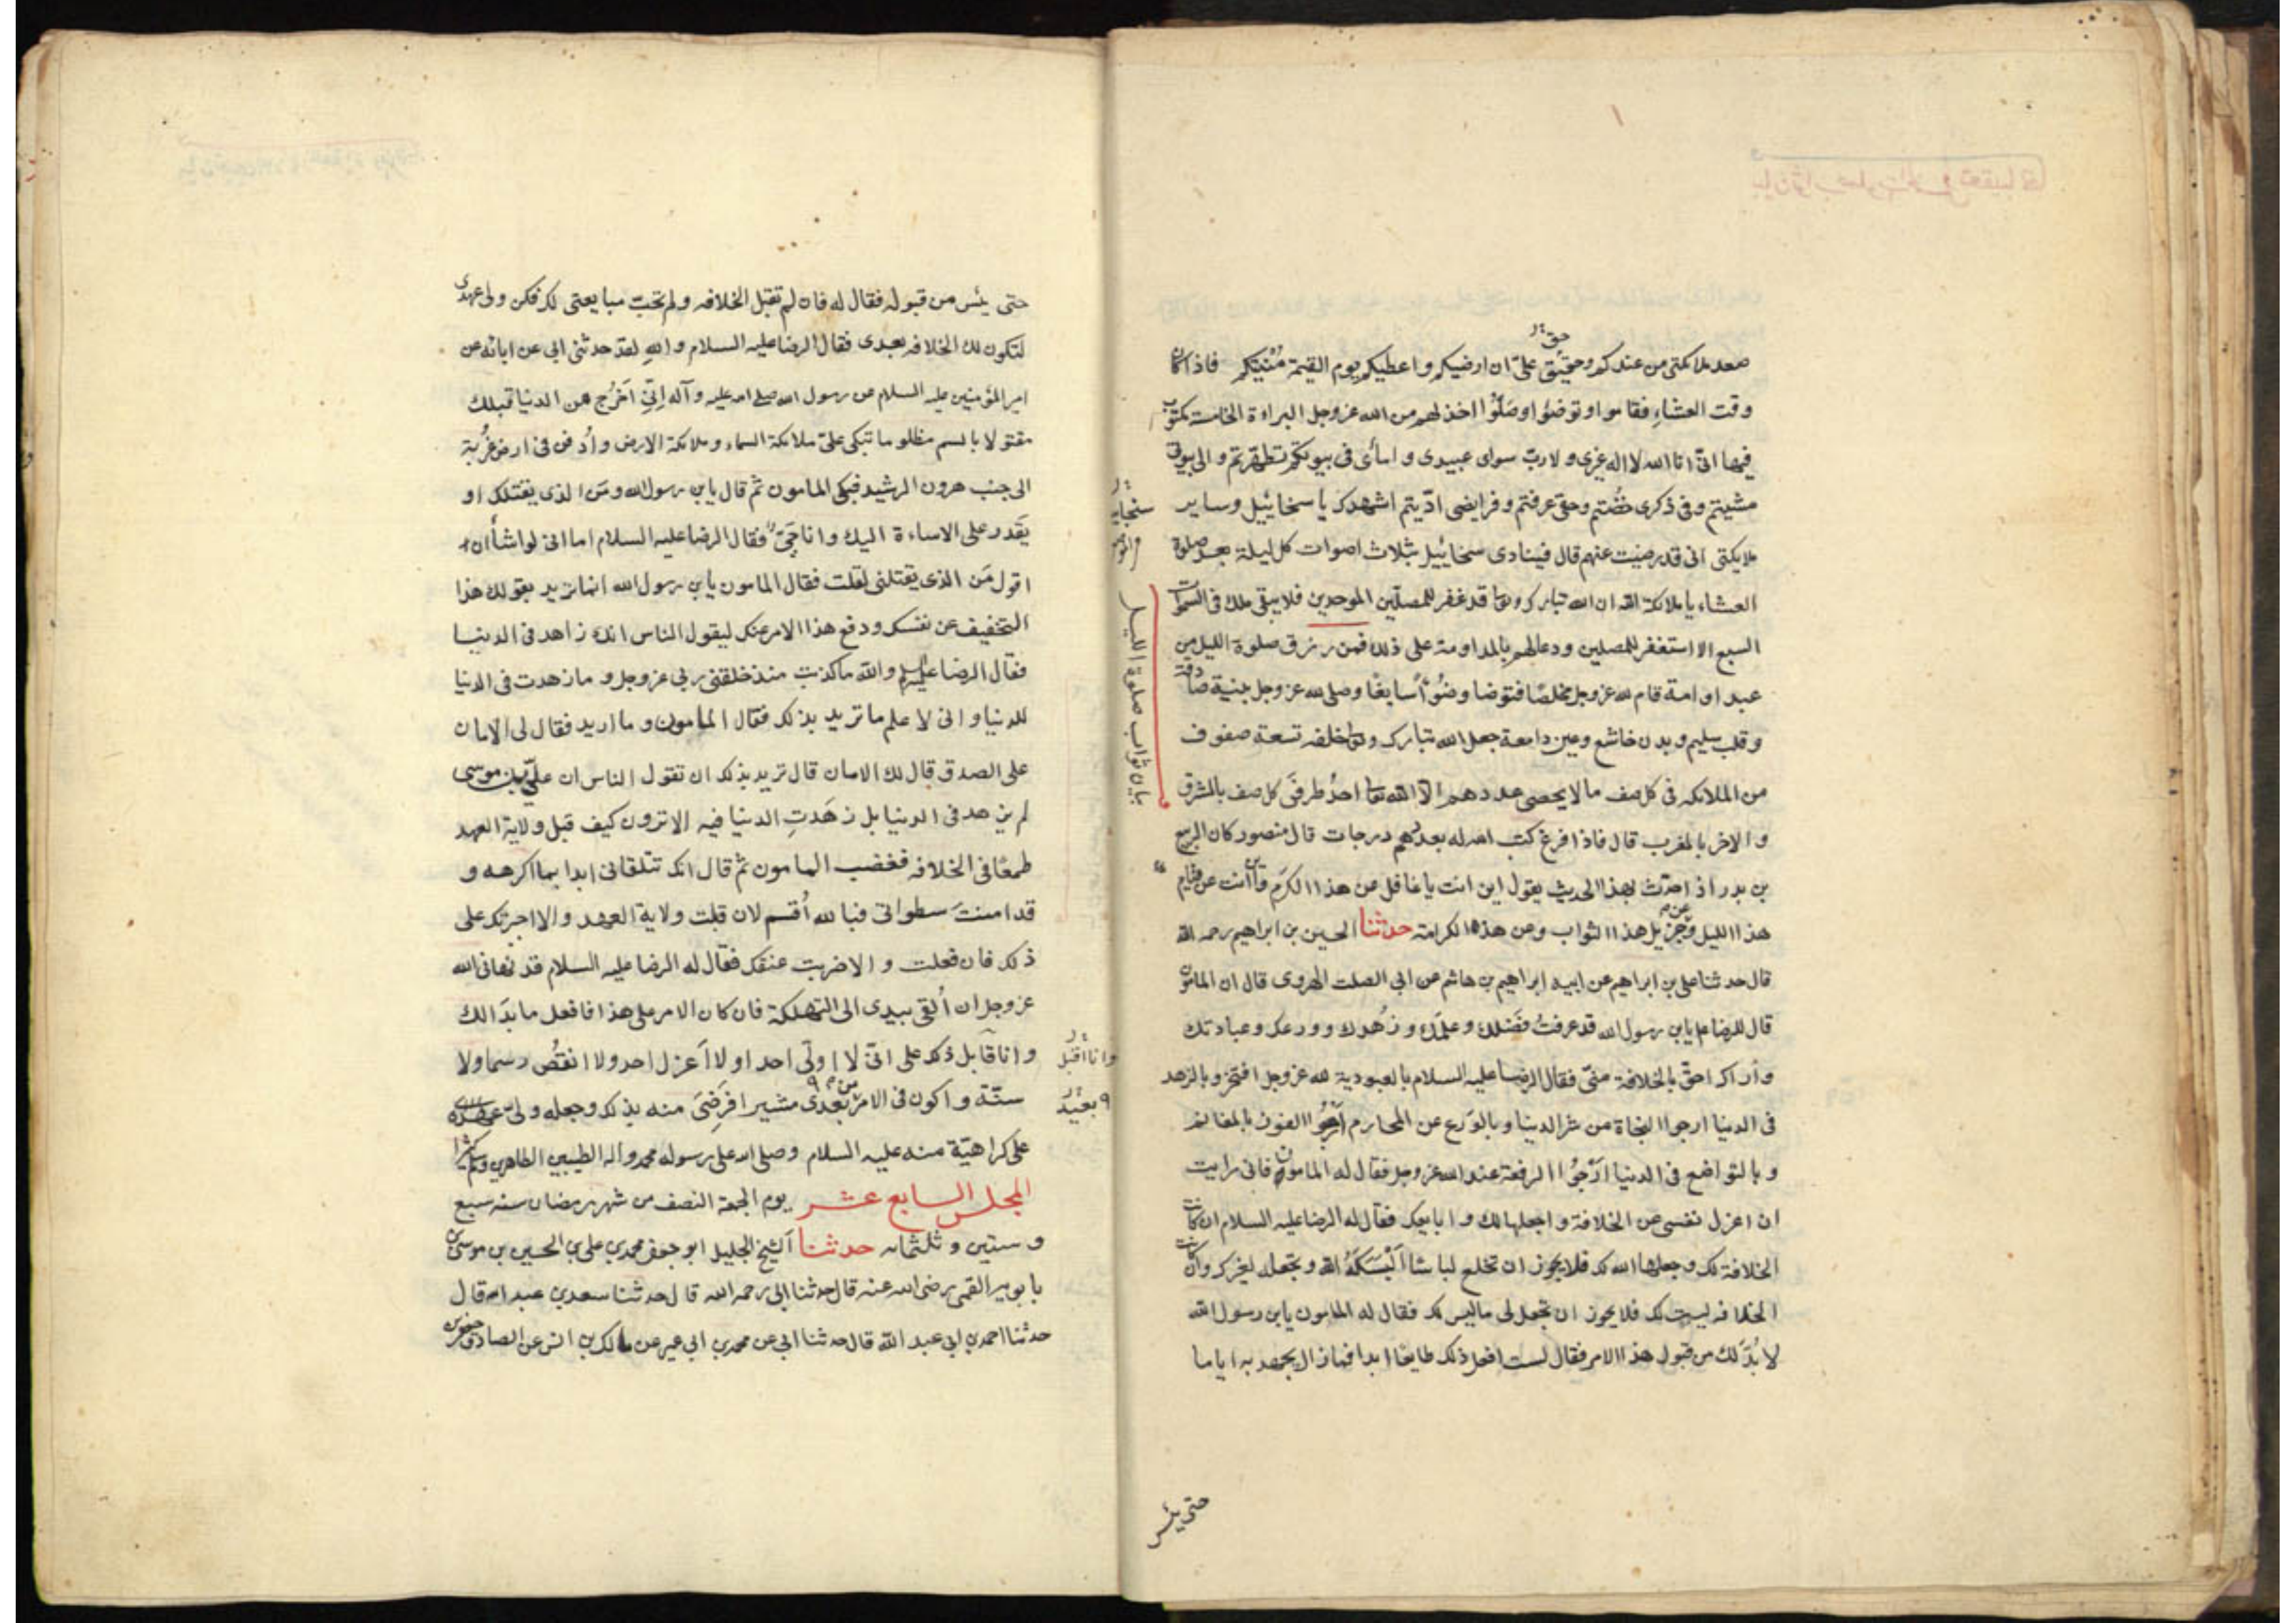 صعد ملائكتى من عندكم وحقيق علىّ ان ارضيكم واعطيكم يوم القيمة مُنْيتكم فاذا كان
وقت العشاءِ فقاموا وتوضؤا وصَلّوا اخذ لهم من الله عزوجل البراءة الخامسة مكتوب
فيها انىّ انا الله لا اله غيرى ولا ربّ سواى عبيدى وامائى فى بيوتكم تطهّرتم والى بيوتى
مشيتم وفى ذكرى خضتم وحقى عرفتم وفرايضى ادّيتم اشهدك يا سخائيل وساير
ملايكتى انى قد رضيت عنهم قال فينادى سخائيل بثلاث اصوات كل ليلة بعد صلوة
العشاء يا ملائكة الله ان الله تبارك وتعا قد غفر للمصلّين الموحدين فلا يبقى ملك فى السموات
السبع الا استغفر للمصلين ودعا لهم بالمداومة على ذلك فمن رزق صلوة الليل من
عبد او امة قام لله عزوجل مخلصًا فتوضا وضُوْأً سابغًا وصلى لله عزوجل بنية صادقة
وقلب سليم وبدن خاشع وعين دامعة جعل الله تبارك وتعا خلفه تسعة صفوف
من الملائكه فى كل صف ما لا يحصى عددهم الّا الله تعا احدُ طرفَى كل صف بالمشرق
والاخر بالمغرب قال فاذا فرغ كتب الله له بعددهم درجات قال منصور كان الربيع
بن بدر اذا حدّث بهذا الحديث يقول اين انت يا غافل عن هذا الكرَم واين انت عن قيام
هذا الليل وعن جزيل هذا الثواب وعن هذه الكرامة حدثنا الحسين بن ابراهيم رحمه الله
قال حدثنا على بن ابراهيم عن ابيه ابراهيم بن هاشم عن ابى الصلت الهروى قال ان المامون
قال للرضا ع يابن رسول الله قد عرفتُ فضلك وعلمك وزُهدك وورعك وعبادتك
وأراك احقّ بالخلافة منىّ فقال الرضا عليه السلام بالعبودية لله عزوجل افتخر وبالزهد
فى الدنيا ارجوا النجاة من شر الدنيا وبالوَرع عن المحارم اَرْجُوا الفوز بالمغانم
وبالتواضع فى الدنيا ارْجُوا الرفعة عند الله عزوجل فقال له المامون فانى رايت
ان اعزل نفسى عن الخلافة واجعلها لك وابايعك فقال له الرضا عليه السلام ان كانت
الخلافة لك وجعلها الله لك فلا يجوز ان تخلع لباسًا اَلْبَسَكَهُ الله وتجعله لغيرك وان كانت
الخلافه ليست لك فلا يجوز ان تجعل لى ما ليس لك فقال له المامون يابن رسول الله
لا بُدَّ لك من قبول هذا الامر فقال لست افعل ذلك طايعًا ابدا فما زال يجهد به اياما
حتى يئس
بيان ثواب صلوة الليل
حتى يئس من قبوله فقال له فان لم تقبل الخلافه ولم تحبّ مبايعتى لك فكن ولى عهدى
لتكون لك الخلافه بعدى فقال الرضا عليه السلام واللهِ لقد حدثنى ابى عن ابائه عن
امير المؤمنين عليه السلام عن رسول الله صلى الله عليه وآله اِنّىِ اَخرُج من الدنيا قبلك
مقتولا بالسم مظلوما تبكى علىّ ملائكة السماء وملائكة الارض واُدفن فى ارض غُربة
الى جنب هرون الرشيد فبكى المامون ثم قال يابن رسول الله ومَن الذى يقتلك او
يَقدر على الاساءة اليك وانا حَىّ فقال الرضا عليه السلام اما انى لو اشأ ان
اقول مَن الذى يقتلنى لقلت فقال المامون يابن رسول الله انما تريد بقولك هذا
التخفيف عن نفسك ودفع هذا الامر عنك ليقول الناس انك زاهد فى الدنيا
فقال الرضا عليه السلم والله ما كذبت منذ خلقنى ربى عزوجل وما زهدت فى الدنيا
للدنيا وانى لاعلم ما تريد بذلك فقال المامون وما اريد فقال لى الامان
على الصدق قال لك الامان قال تريد بذلك ان تقول الناس ان علىّ بن موسى
لم يزهد فى الدنيا بل زهَدتِ الدنيا فيه الا ترون كيف قبل ولاية العهد
طمعًا فى الخلافه فغضب المامون ثم قال انك تتلقانى ابدا بما اكرهه و
قد امنتَ سطواتى فبالله اُقسم لان قبلت ولاية العهد والا اجبرتك على
ذلك فان فعلت والا ضربت عنقك فقال له الرضا عليه السلام قد نهانى الله
عزوجل ان اُلقى بيدى الى التهلكة فان كان الامر على هذا فافعل ما بدَا لك
وانا قابل ذلك على انىّ لا اولّى احدا ولا اَعزل احد ولا انقُص رسما ولا
سنّة واكون فى الامر من بعدى مشيرا فرَضىَ منه بذلك وجعله ولىّ عهده
على كراهيّة منه عليه السلام وصلى الله على رسوله محمد واله الطيبين الطاهرين وسلم كثيرا
المجلس السابع عشر يوم الجمعة النصف من شهر رمضان سنه سبع
وستين وثلثمائه حدثنا الشيخ الجليل ابو جعفر محمد بن على بن الحسين بن موسى بن
بابويه القمى رضى الله عنه قال حدثنا ابى رحمه الله قال حدثنا سعد بن عبد الله قال
حدثنا احمد بن ابى عبد الله قال حدثنا ابى عن محمد بن ابى عمير عن مالك بن انس عن الصادق جعفر بن
وانا اقبل
بعيد